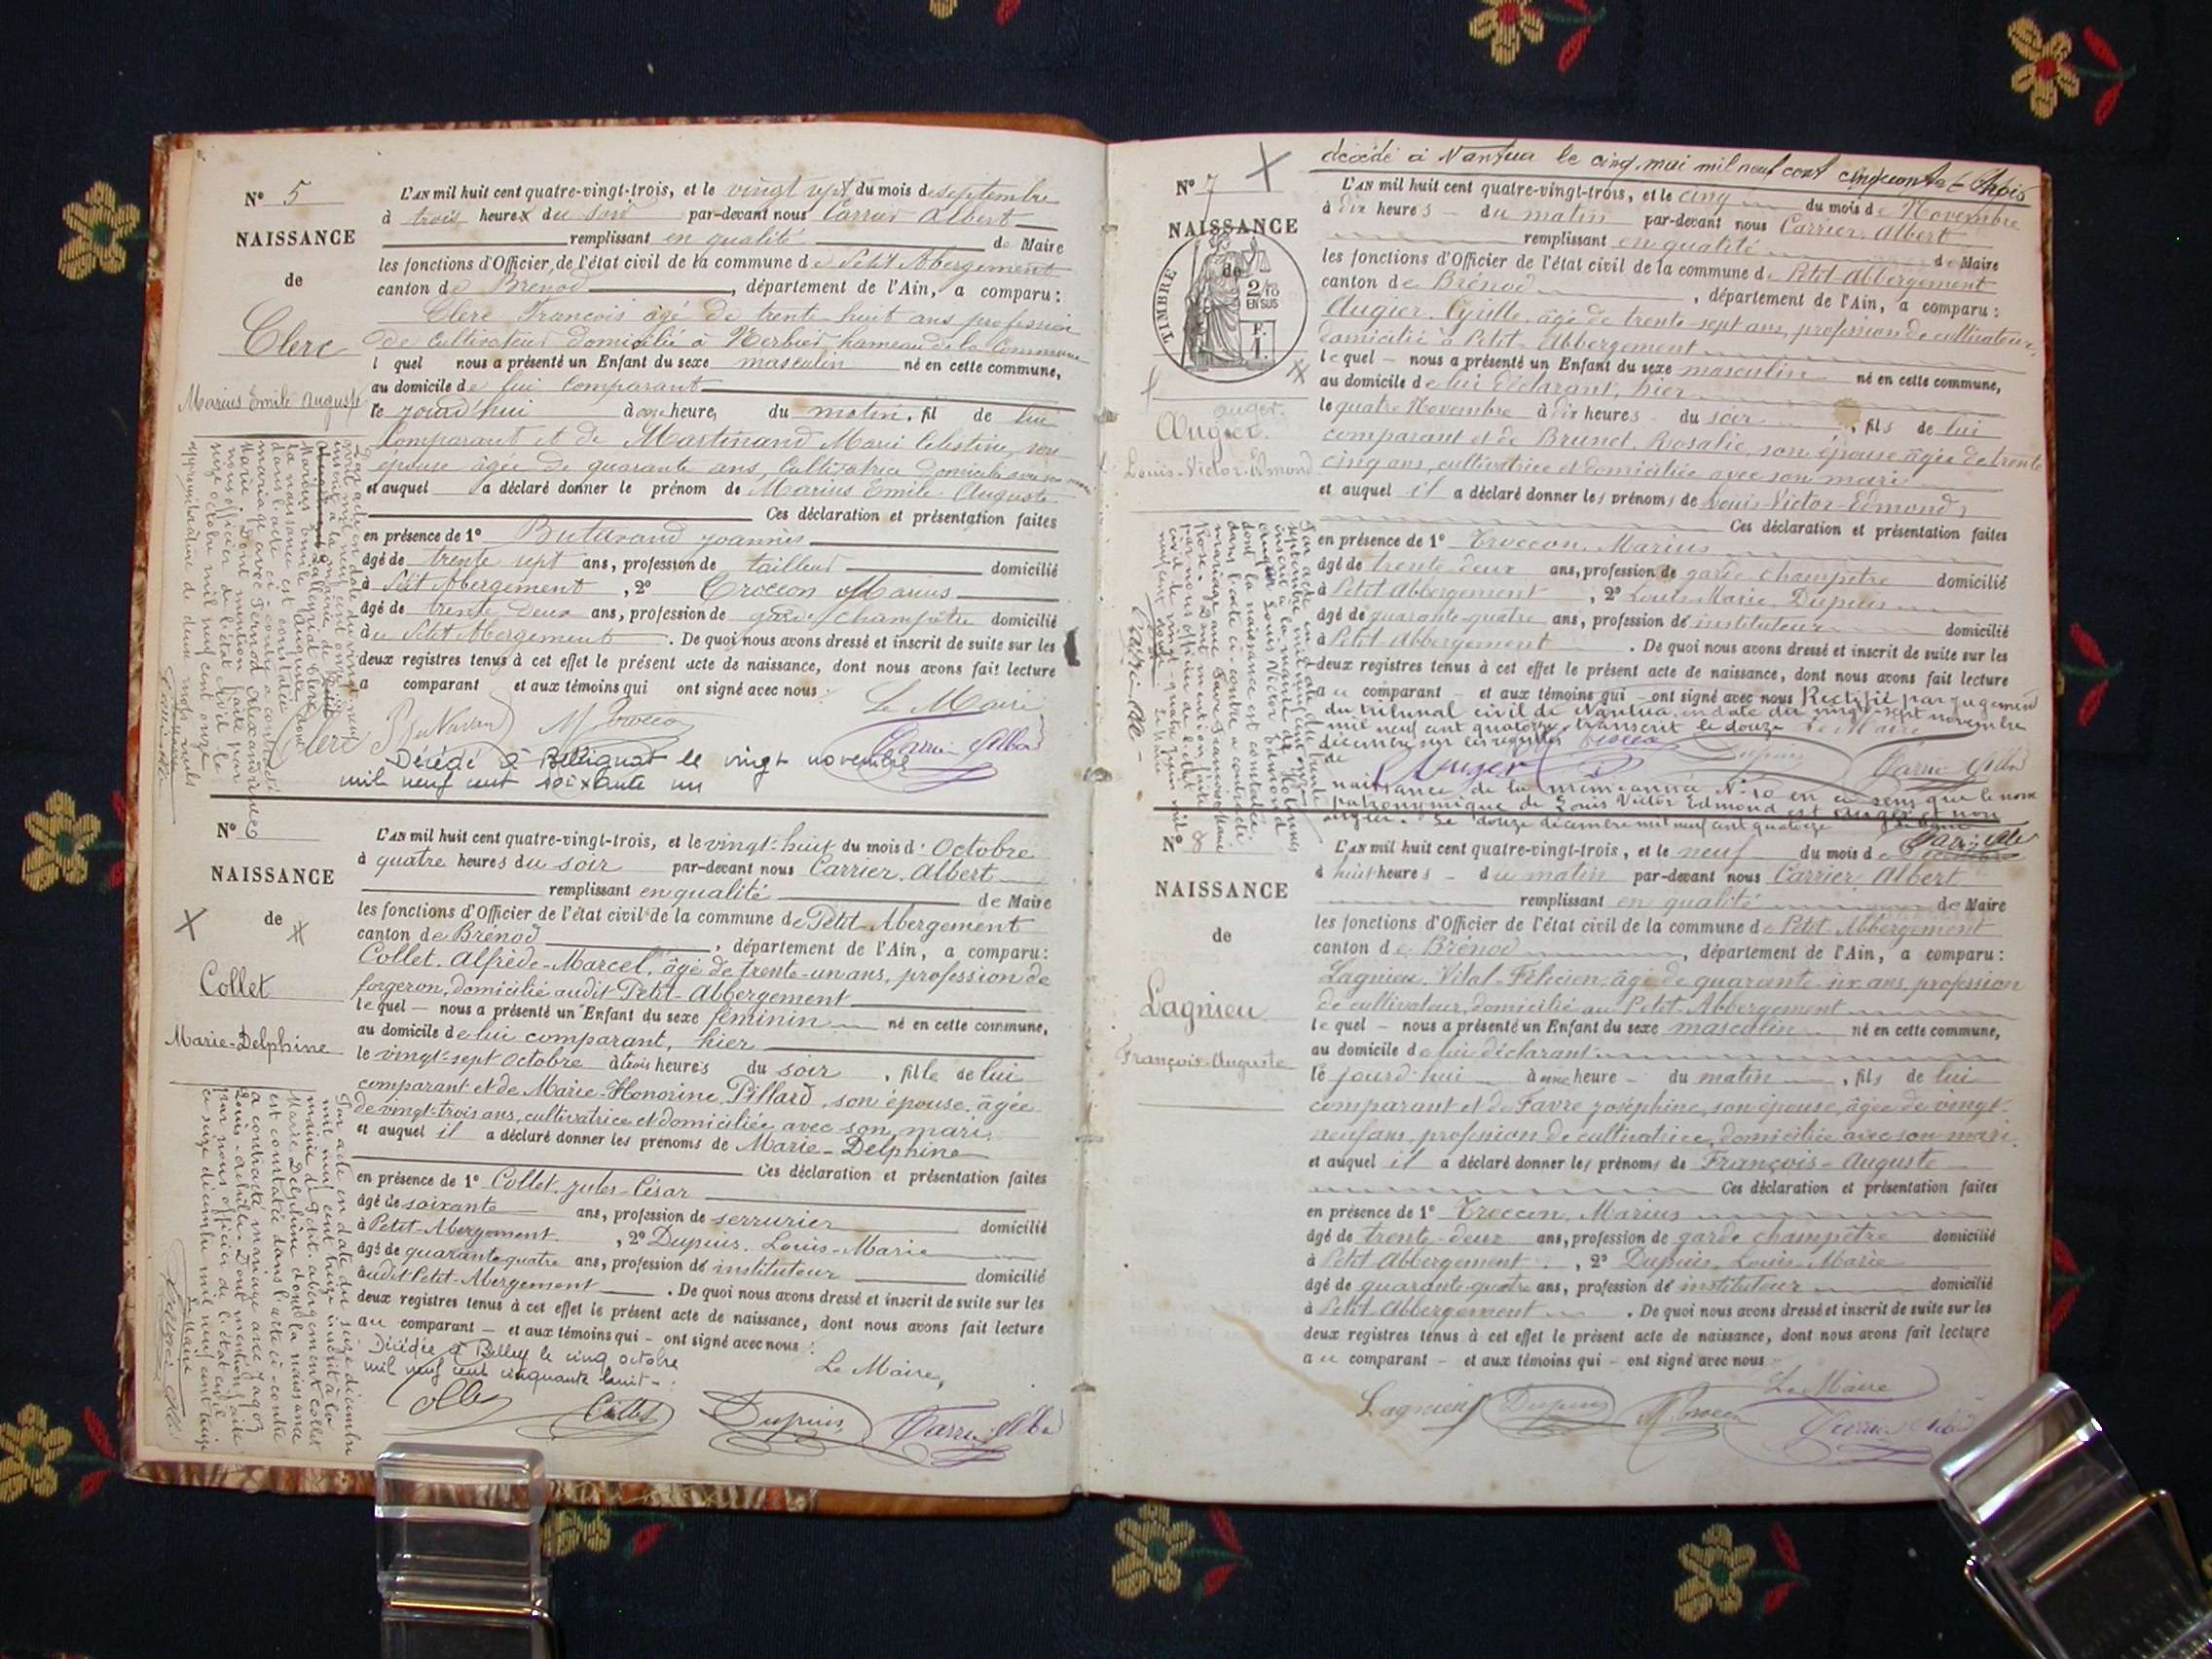 N° 5
NAISSANCE
de
Clerc
Marius Emile Auguste
L'AN mil huit cent quatre-vingt-trois, et le vingt sept du mois de septembre
à trois heures du soir par-devant nous Carrier Albert
remplissant en qualité de Maire
les fonctions d'Officier de l'état civil de la commune de Petit Abergement
canton de Brénod, département de l'Ain, a comparu:
Clerc François âgé de trente huit ans profession
de cultivateur domicilié à hameau de la Commune
l quel nous a présenté un Enfant du sexe masculin né en cette commune,
au domicile de lui Comparant
le jourd'hui à heures du matin, fil de lui
Comparant et de Martinand Marie Célestine, son
épouse âgée de quarante ans, Cultivatrice
et auquel a déclaré donner le prénom de Marius Emile Auguste
Ces déclaration et présentation faites
en présence de 1° Buturand Joannès
âgé de trente sept ans, profession de tailleur domicilié
à Petit Abergement, 2° Troccon Marius
âgé de trente deux ans, profession de garde champêtre domicilié
à Petit Abergement. De quoi nous avons dressé et inscrit de suite sur les
deux registres tenus à cet effet le présent acte de naissance, dont nous avons fait lecture
a comparant et aux témoins qui ont signé avec nous
Le Maire
Clerc
Décédé à Bellignat le vingt novembre
mil neuf cent soixante un
N° 6
NAISSANCE
de
Collet
Marie-Delphine
L'AN mil huit cent quatre-vingt-trois, et le vingt-huit du mois d'Octobre
à quatre heures du soir par-devant nous Carrier Albert
remplissant en qualité de Maire
les fonctions d'Officier de l'état civil de la commune de Petit-Abergement
canton de Brénod, département de l'Ain, a comparu:
Collet, Alfrède-Marcel, âgé de trente-un ans, profession de
forgeron, domicilié audit Petit-Abbergement
le quel — nous a présenté un Enfant du sexe féminin né en cette commune,
au domicile de lui comparant, hier
le vingt-sept Octobre à trois heures du soir, fille de lui
comparant et de Marie-Honorine Pillard, son épouse, âgée
de vingt-trois ans, cultivatrice et domiciliée avec son mari
et auquel il a déclaré donner les prénoms de Marie-Delphine
Ces déclaration et présentation faites
en présence de 1° Collet, Jules-César
âgé de soixante ans, profession de serrurier domicilié
à Petit-Abergement, 2° Dupuis, Louis-Marie
âgé de quarante quatre ans, profession de instituteur domicilié
audit Petit-Abergement. De quoi nous avons dressé et inscrit de suite sur les
deux registres tenus à cet effet le présent acte de naissance, dont nous avons fait lecture
au comparant — et aux témoins qui — ont signé avec nous:
Décédée à Belley le cinq octobre
mil neuf cent cinquante huit
Le Maire,
Collet Collet Dupuis
Par acte en date du seize décembre
mil neuf cent treize inscrit à la
mairie de Petit-Abergement Collet
Marie Delphine dont la naissance
est constatée dans l'acte ci-contre
a contracté mariage avec
Louis-Achille. Dont mention faite
par nous officier de l'état civil
ce seize décembre mil neuf cent treize
Le Maire
décédé à Nantua le cinq mai mil neuf cent cinquante trois
N° 7
NAISSANCE
de
TIMBRE
2/10
EN SUS
F.
1.
auger
Augier
Louis-Victor-Edmond
L'AN mil huit cent quatre-vingt-trois, et le cinq du mois de Novembre
à dix heures — du matin par-devant nous Carrier Albert
remplissant en qualité de Maire
les fonctions d'Officier de l'état civil de la commune de Petit Abbergement
canton de Brénod, département de l'Ain, a comparu:
Augier, Cyrille, âgé de trente-sept ans, profession de cultivateur,
domicilié à Petit-Abbergement
le quel — nous a présenté un Enfant du sexe masculin né en cette commune,
au domicile de lui déclarant, hier
le quatre Novembre à dix heures du soir, fils de lui
comparant et de Brunet, Rosalie, son épouse âgée de trente
cinq ans, cultivatrice et domiciliée avec son mari
et auquel il a déclaré donner les prénoms de Louis-Victor-Edmond
Ces déclaration et présentation faites
en présence de 1° Troccon, Marius
âgé de trente deux ans, profession de garde champêtre domicilié
à Petit Abbergement, 2° Louis-Marie Dupuis
âgé de quarante-quatre ans, profession de instituteur domicilié
à Petit Abbergement. De quoi nous avons dressé et inscrit de suite sur les
deux registres tenus à cet effet le présent acte de naissance, dont nous avons fait lecture
au comparant — et aux témoins qui — ont signé avec nous Rectifié par jugement
du tribunal civil de Nantua en date du vingt-sept novembre
mil neuf cent quatorze, transcrit le douze
décembre sur les registres
Le Maire
Auger
Dupuis
naissance de la même année N° 10 en ce sens que le nom
patronymique de Louis Victor Edmond est Auger et non
augier. Le douze décembre mil neuf cent quatorze
N° 8
NAISSANCE
de
Lagnieu
François-Auguste
L'AN mil huit cent quatre-vingt-trois, et le neuf du mois de
à huit heures — du matin par-devant nous Carrier Albert
remplissant en qualité de Maire
les fonctions d'Officier de l'état civil de la commune de Petit Abbergement
canton de Brénod, département de l'Ain, a comparu:
Lagnieu, Vital-Félicien, âgé de quarante-six ans, profession
de cultivateur, domicilié au Petit-Abbergement
le quel — nous a présenté un Enfant du sexe masculin né en cette commune,
au domicile de lui déclarant
le jourd'hui à une heure — du matin, fils de lui
comparant et de Favre Joséphine, son épouse, âgée de vingt
neuf ans, profession de cultivatrice, domiciliée avec son mari.
et auquel il a déclaré donner les prénoms de François-Auguste
Ces déclaration et présentation faites
en présence de 1° Troccon, Marius
âgé de trente-deux ans, profession de garde champêtre domicilié
à Petit Abbergement, 2° Dupuis, Louis Marie
âgé de quarante-quatre ans, profession de instituteur domicilié
à Petit-Abbergement. De quoi nous avons dressé et inscrit de suite sur les
deux registres tenus à cet effet le présent acte de naissance, dont nous avons fait lecture
au comparant — et aux témoins qui — ont signé avec nous
Le Maire
Lagnieu Dupuis M. Troccon